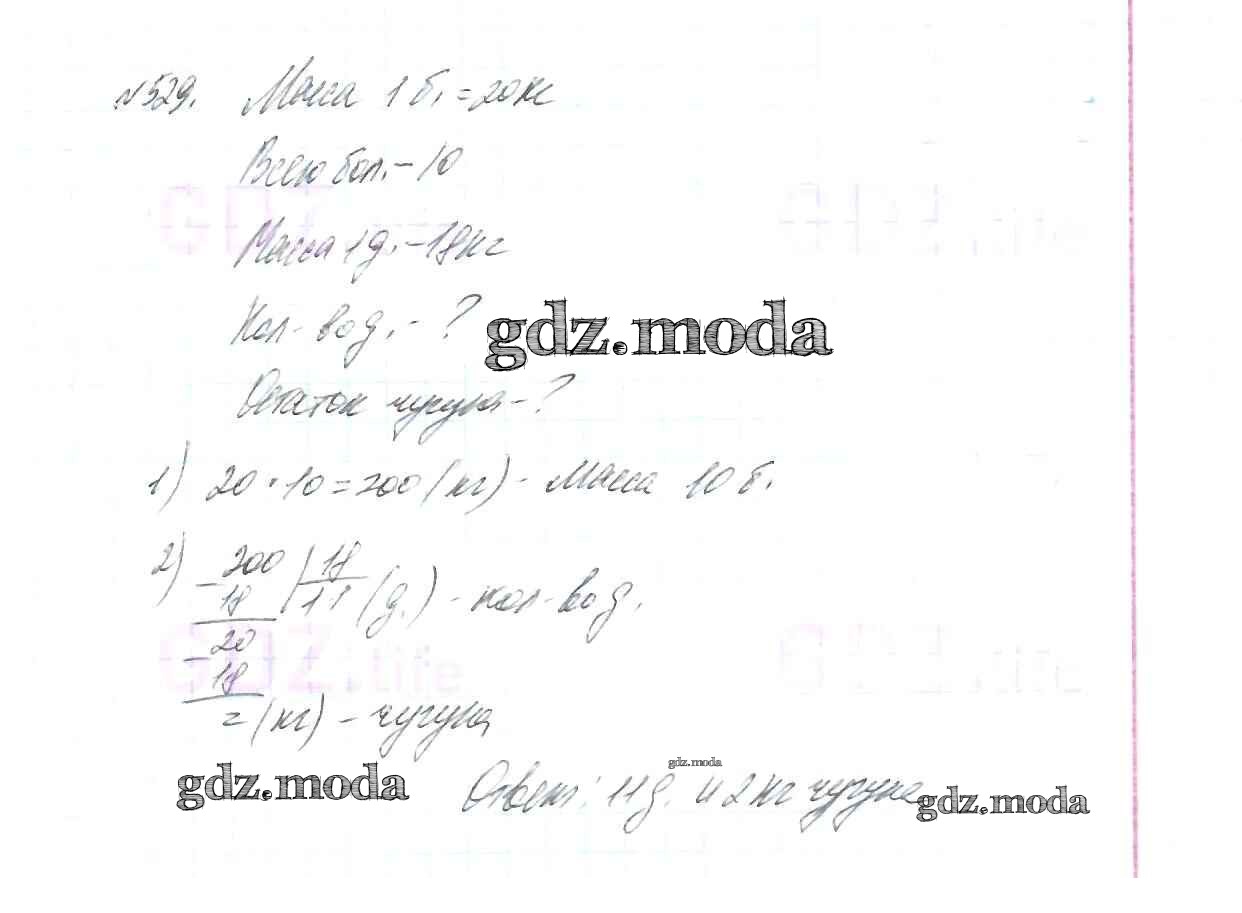 №529. Масса 1 б. = 20 кг
GDZ.life GDZ.life
Всего бол. – 10
Масса 1 д. – 18 кг
Кол-во д. – ?
gdz.moda
Остаток чугуна – ?
1) 20 · 10 = 200 (кг) – Масса 10 б.
2) 200 | 18
– 18 | 11 (д.) – кол-во д.
20
– 18
GDZ.life GDZ.life
2 (кг) – чугуна
gdz.moda
gdz.moda
Ответ: 11 д. и 2 кг чугуна
gdz.moda